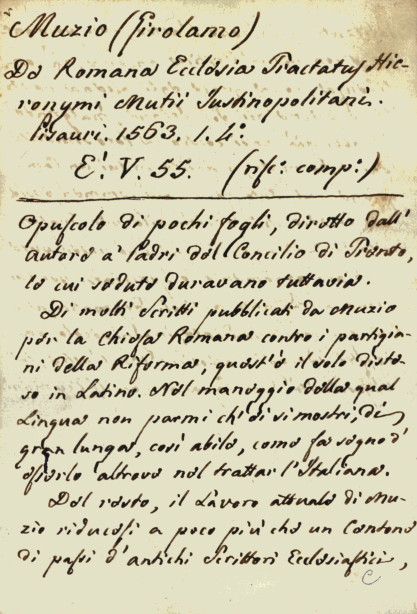 Muzio (Girolamo)
De Romana Ecclesia Tractatus Hie-
ronymi Mutii Justinopolitani.
Pisauri. 1563. 1. 4°.
E. V. 55. (misc: comp:)
Opuscolo di pochi fogli, diretto dall'
autore a' Padri del Concilio di Trento,
le cui sedute duravano tuttavia.
Di molti Scritti pubblicati da Muzio
per la Chiesa Romana contro i partigia-
ni della Riforma, quest'è il solo diste-
so in Latino. Nel maneggio della qual
Lingua non parmi ch'ei si mostri, di
gran lunga, così abile, come fa segno d'
esserlo altrove nel trattar l'Italiana.
Del resto, il Lavoro attuale di Mu-
zio riducesi a poco più che un Centone
di passi d'antichi Scrittori Ecclesiastici,